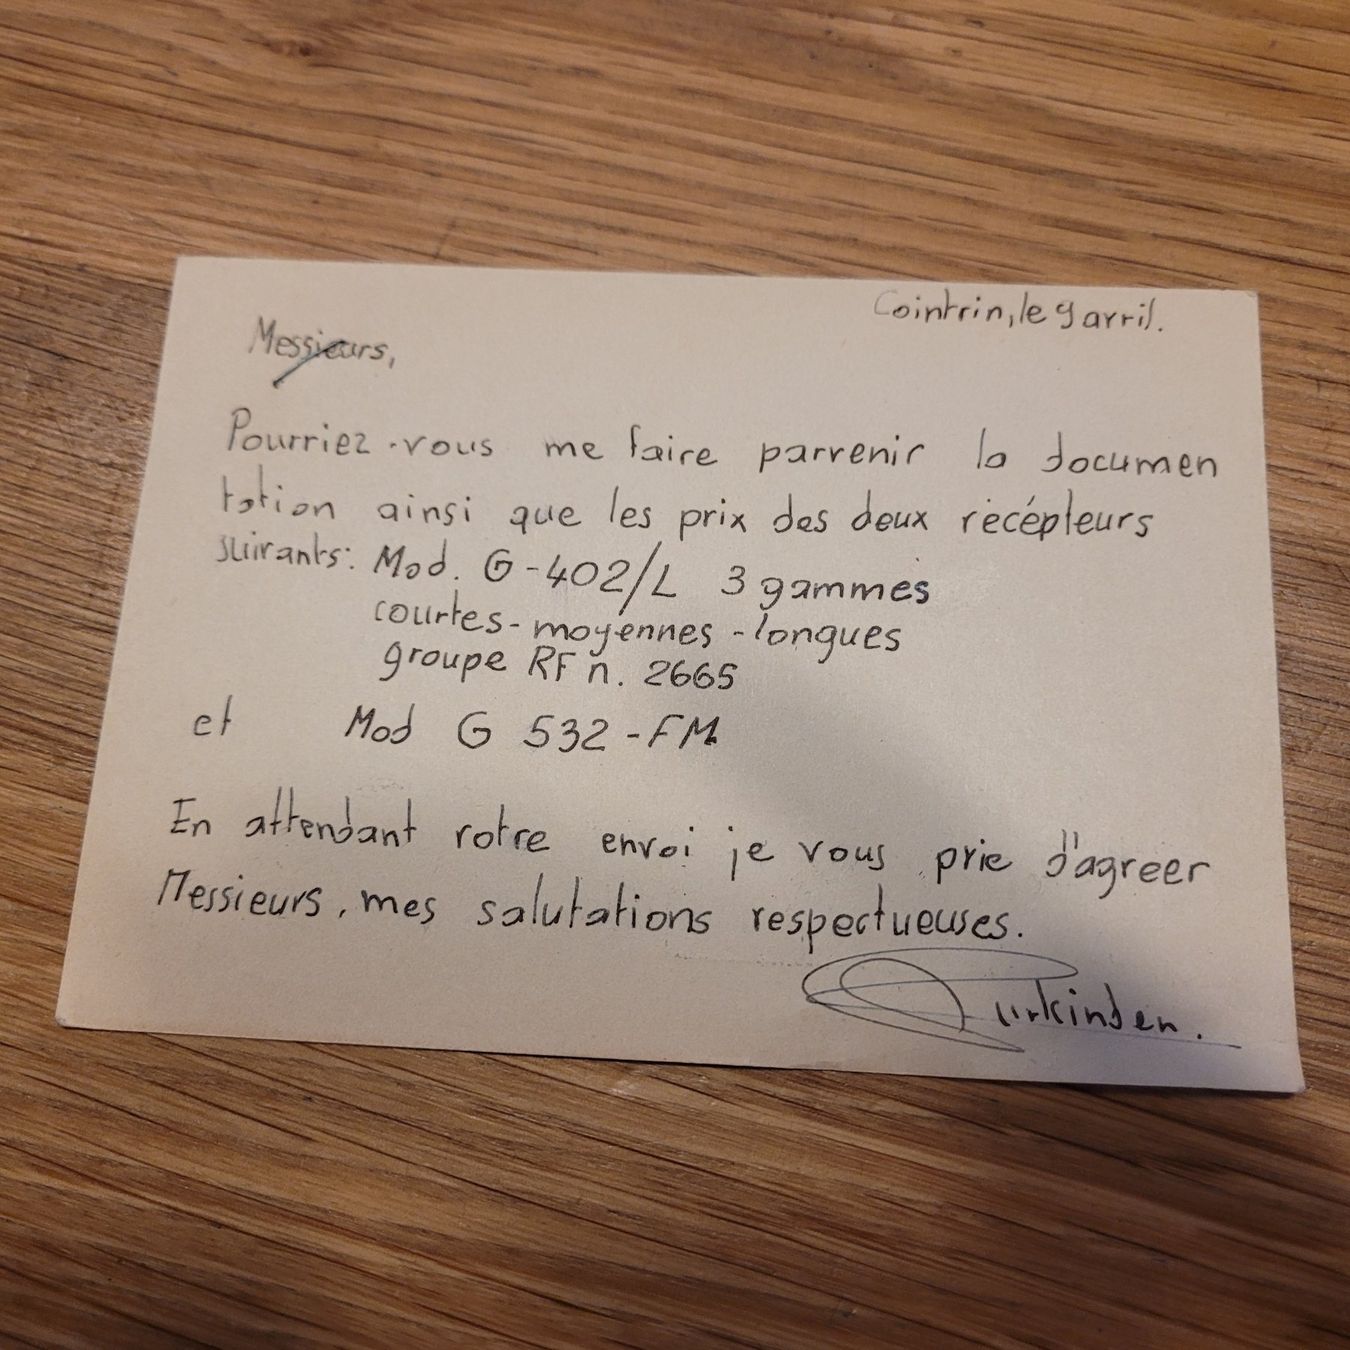 Cointrin, le 9 avril.
Messieurs,
Pourriez-vous me faire parvenir la documen
tation ainsi que les prix des deux récépteurs
suivants: Mod. G-402/L 3 gammes
courtes-moyennes-longues
groupe RF n. 2665
et Mod G 532-FM
En attendant votre envoi je vous prie d'agreer
Messieurs, mes salutations respectueuses.